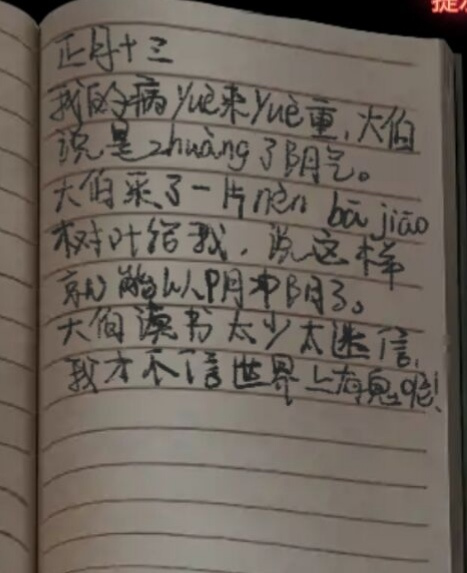 正月十三
我的病yuè来yuè重，大伯
说是zhuàng了阴气。
大伯采了一片nèn bā jiāo
树叶给我，说这样
就能以阴冲阴了。
大伯读书太少太迷信，
我才不信世界上有鬼呢！